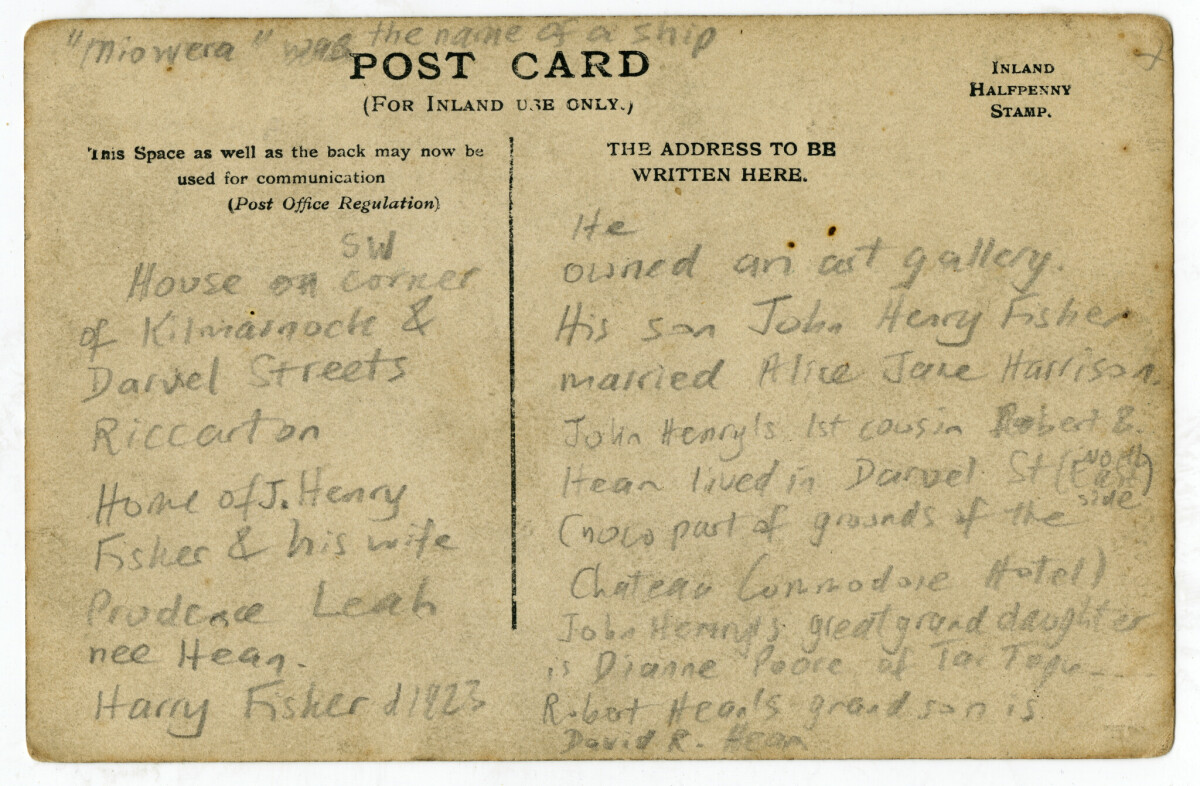 "Miowera" was the name of a ship
POST CARD
(FOR INLAND USE ONLY.)
INLAND
HALFPENNY
STAMP.
This Space as well as the back may now be
used for communication
(Post Office Regulation)
SW
House on corner
of Kilmarnock &
Darvel Streets
Riccarton
Home of J. Henry
Fisher & his wife
Prudence Leah
nee Hean.
Harry Fisher d 1923
THE ADDRESS TO BE
WRITTEN HERE.
He
owned an art gallery.
His son John Henry Fisher
married Alice Jane Harrison.
John Henry's 1st cousin Robert B.
Hean lived in Darvel St (North East side)
(now part of grounds of the
Chateau Commodore Hotel)
John Henry's great grand daughter
is Dianne Poore of Tai Tapu
Robert Hean's grand son is
David R. Hean